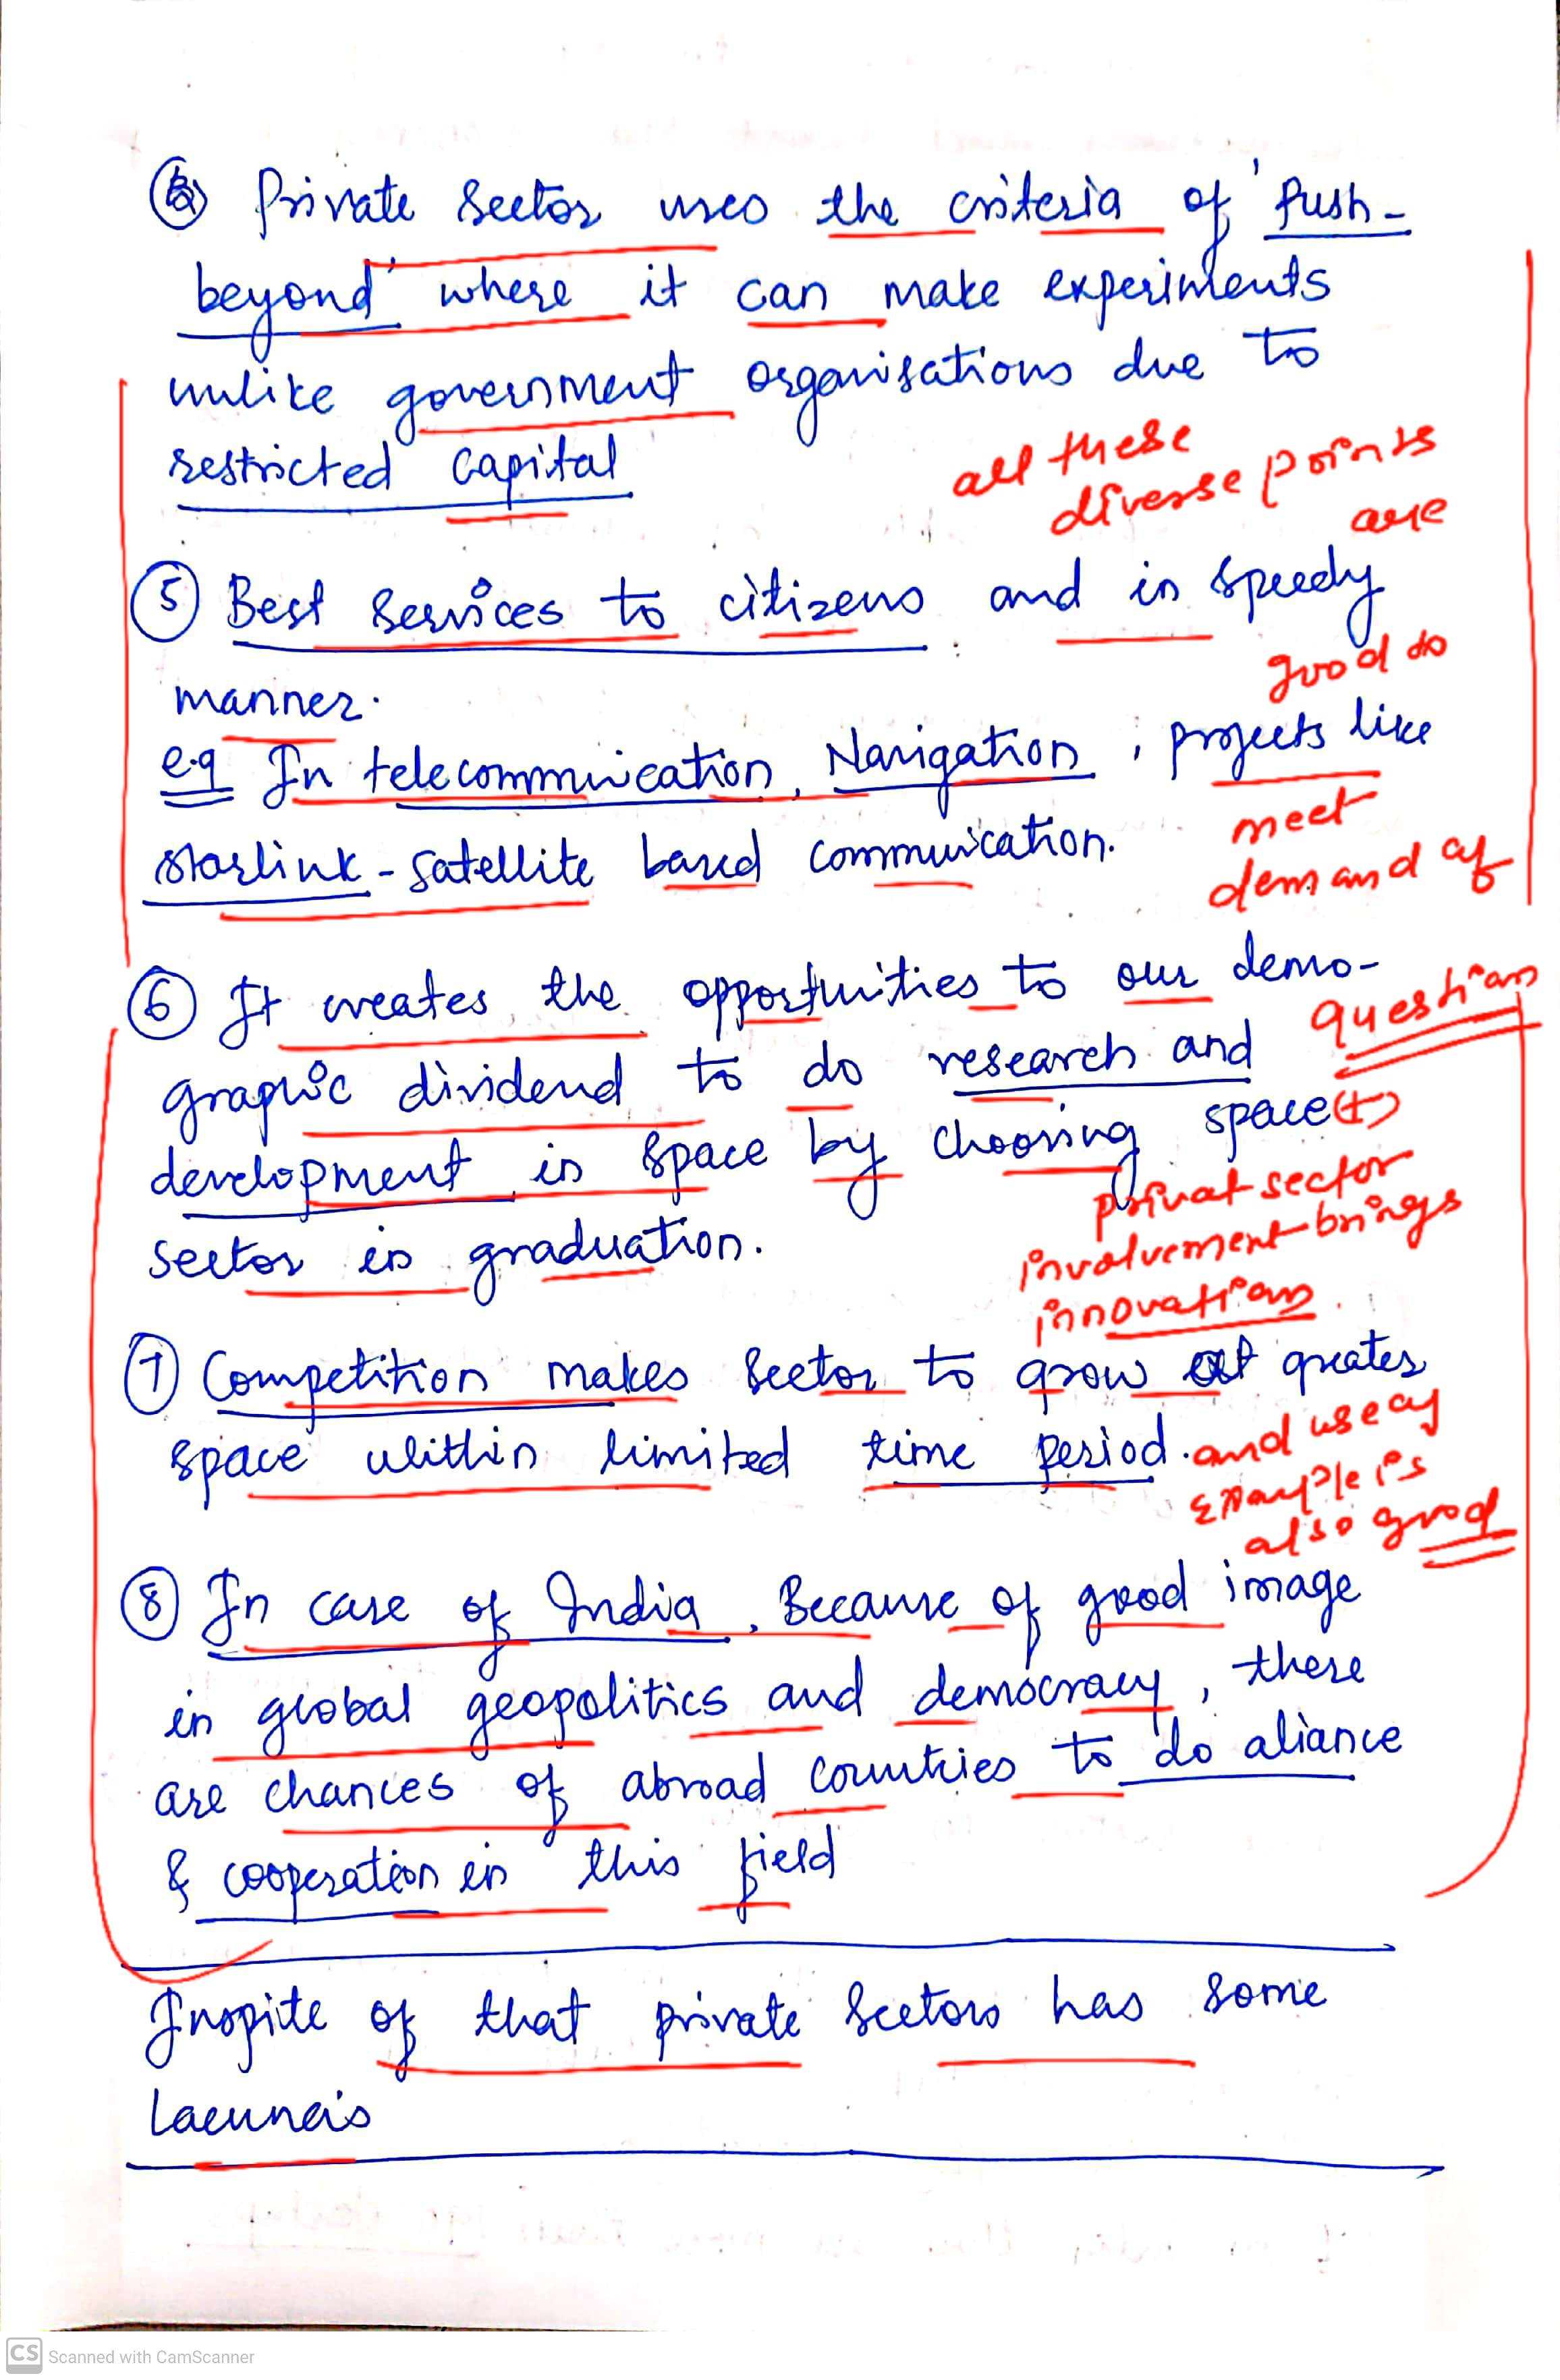 ④ Private Sector uses the criteria of 'Push-
beyond' where it can make experiments
unlike government organisations due to
restricted capital
all these
diverse points
are
⑤ Best Services to citizens and in speedy
manner.
good to
e.g In telecommunication, Navigation, projects like
meet
starlink - satellite based communication.
demand of
⑥ It creates the opportunities to our demo-
question
graphic dividend to do research and
development in space by choosing space
(+)
privat sector
sector in graduation.
involvement brings
innovation.
⑦ Competition makes Sector to grow at greater
space within limited time period.
and use of
example is
also good
⑧ In case of India, Because of good image
in global geopolitics and democracy, there
are chances of abroad countries to do aliance
& cooperation in this field
Inspite of that private Sectors has some
Lacunais
CS Scanned with CamScanner